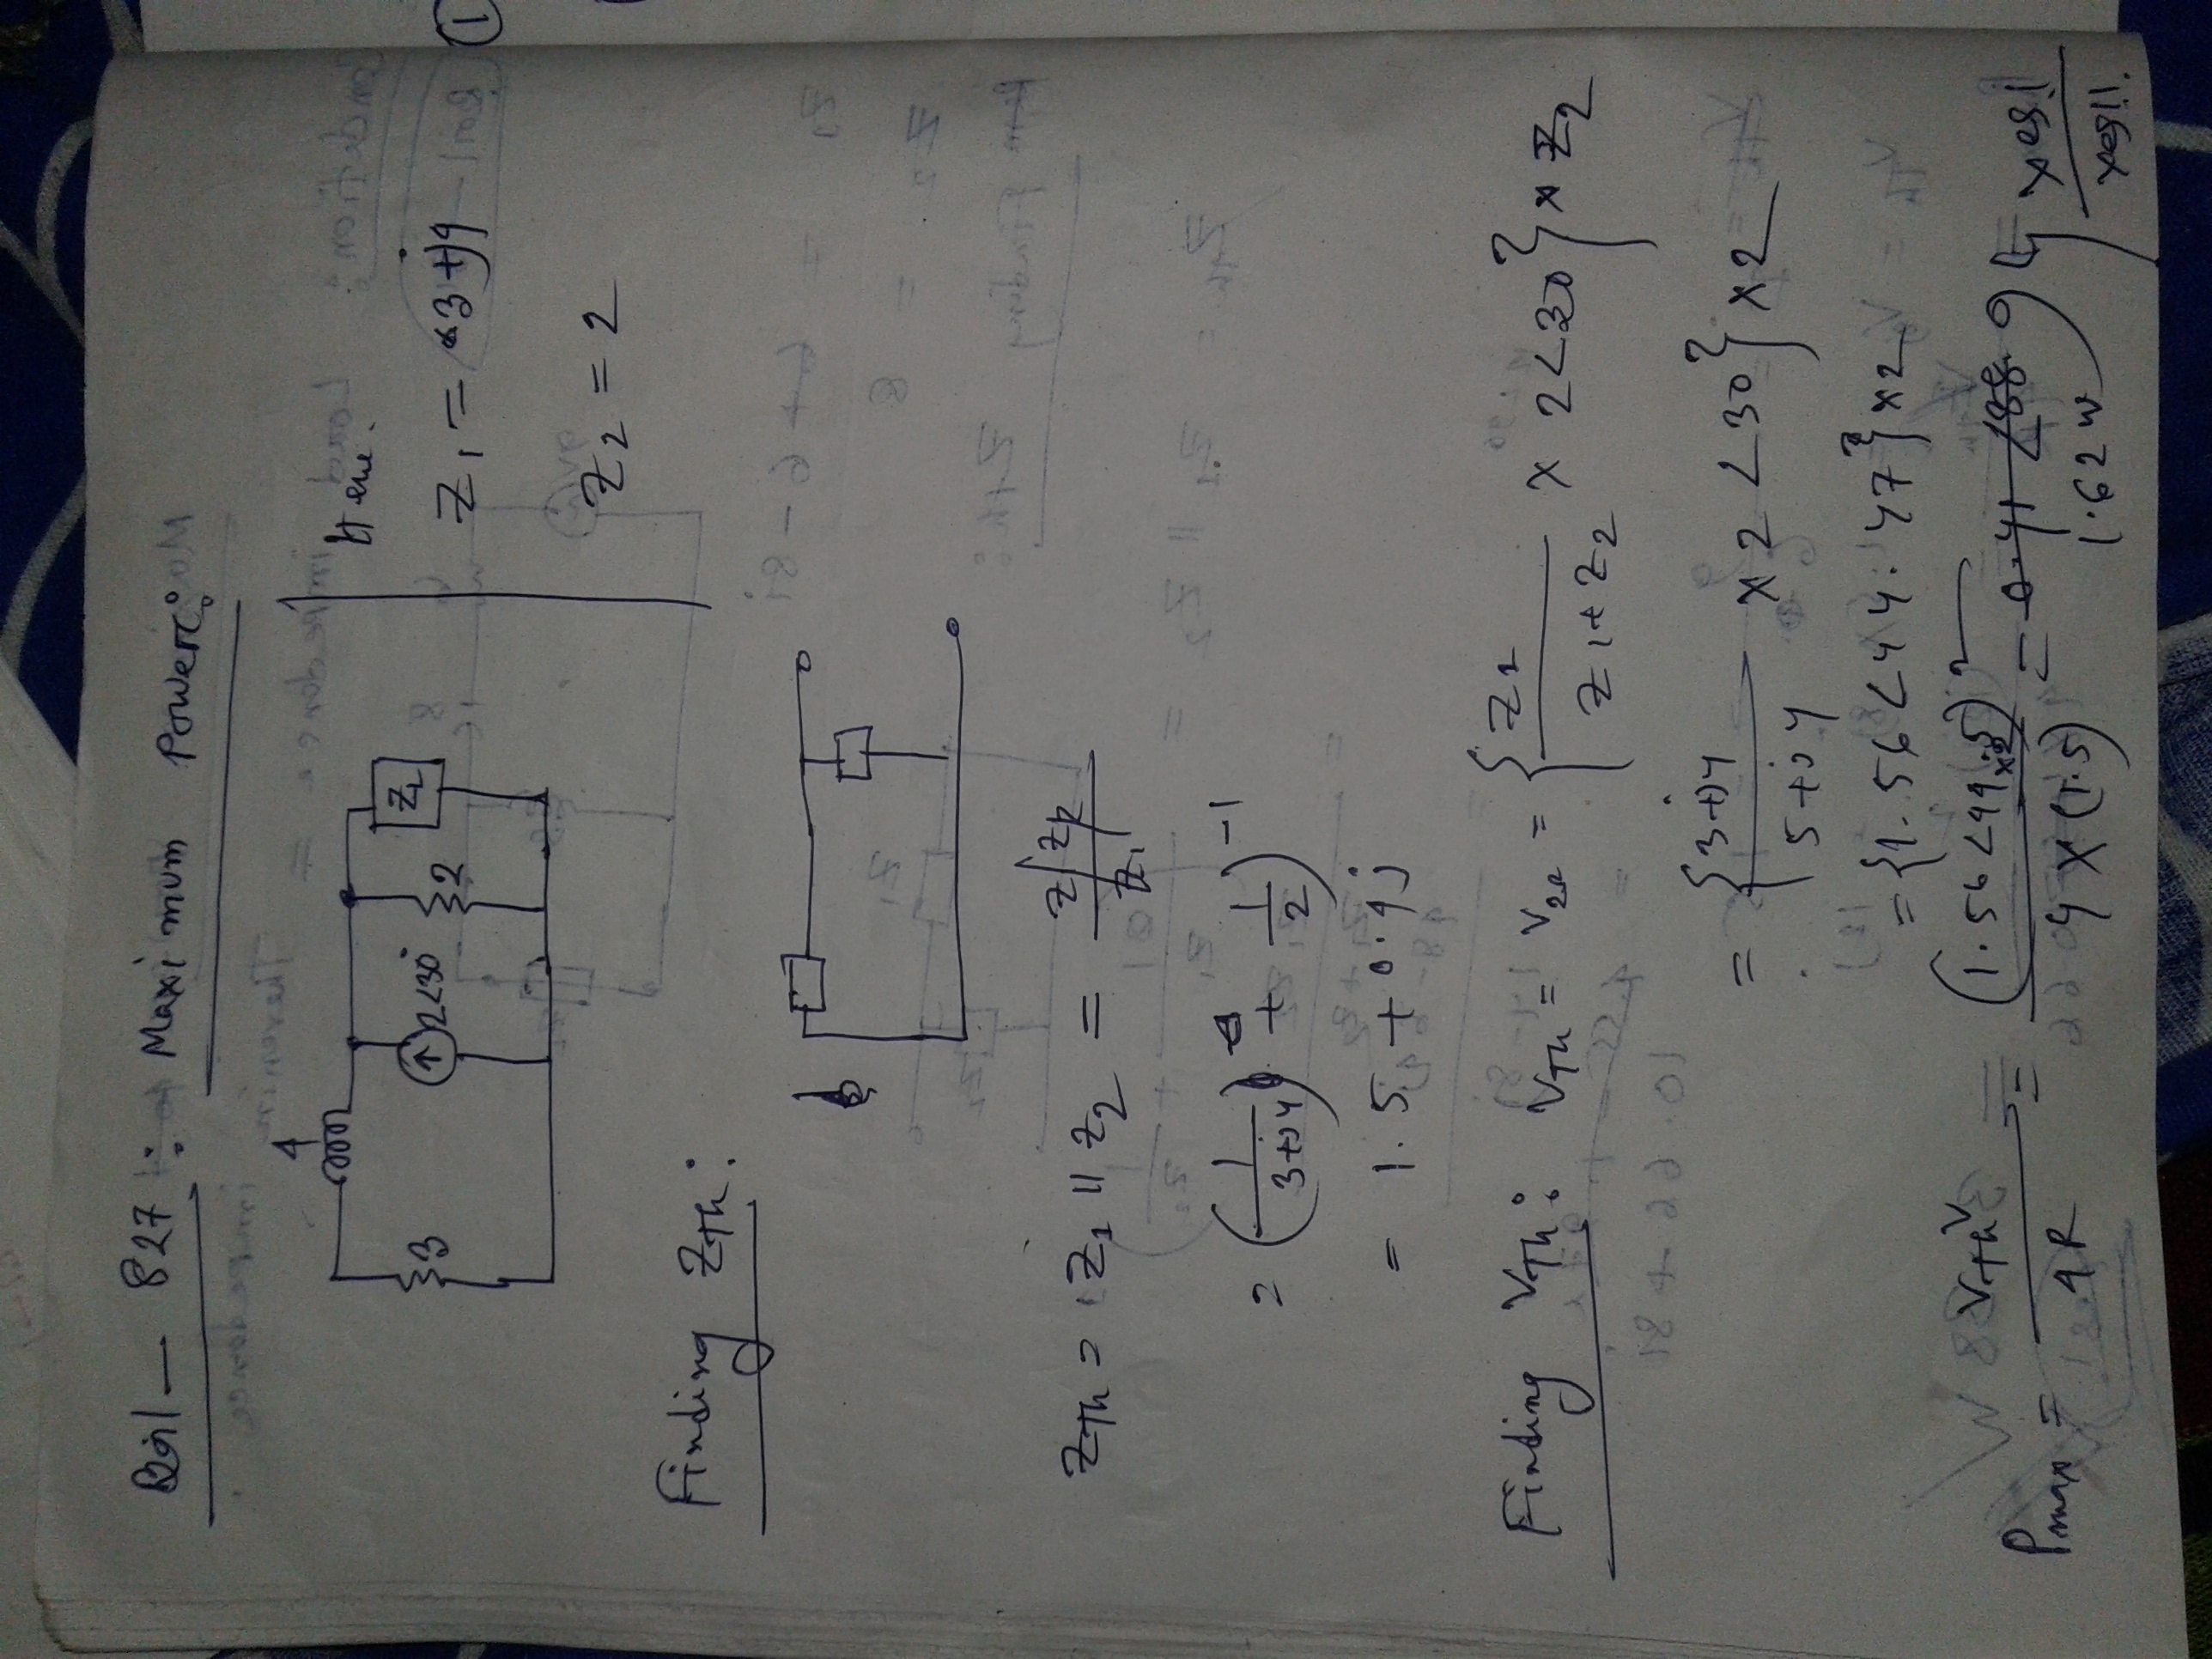 Boil — 827 : Maximum Power:
4
3
2<30°
2
ZL
Here.
Z1 = 3+j4
1
Z2 = 2
Finding ZTh:
ZTh = Z1 || Z2 =
= (1/(3+j4) + 1/2)^-1
= 1.5 + 0.4j
Finding VTh: VTh = V2Ω = {Z1/(Z1+Z2) × 2<30} × Z2
= {(3+j4)/(5+j4) × 2 <30} × 2
= {1.56 <44.47} × 2
Pmax = VTh²/4R = (1.56<44.5 ×2)²/(4 × (1.5)) = 0.41 <88
1.62 W
yes!
yes!!.